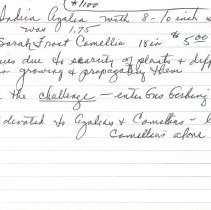 $1.00
Indica Azalia with 8-10 inch
was 1.75
Sarah Frost Camellia 18 in $5.00
due to scarcity of plants & diff
in growing & propagating them
the challenge - enter Gus Gerbing
devoted to Azalias & Camellias -
Camellias alone